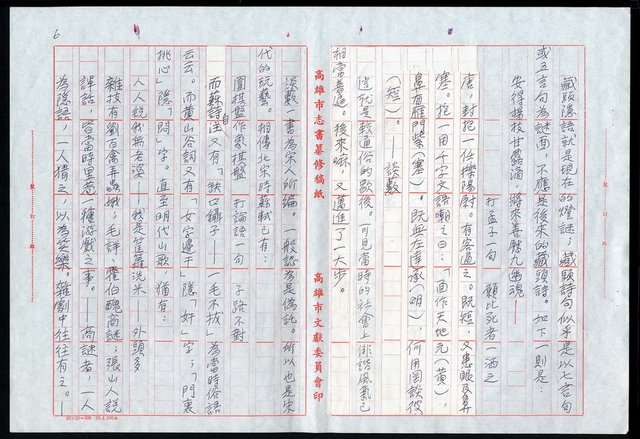 藏頭隱語就是現在的燈謎；藏頭詩句似乎是以七言句
或五言句為謎面，不應是後來的藏頭詩。如下一則是：
安得楊枝甘露滴，將來尋歷九幽魂——
打孟子一句　願比死者一洒之
唐，封抱一任櫟陽尉。有客過之。既短，又患眼及鼻
塞。抱一用千字文語嘲之曰：「面作天地元（黃），
鼻有雁門紫（塞）。既無左達承（明），何用罔談彼
（短）。」——談藪
這就是較通俗的歇後。可見當時的社會上俳諧風氣已
相當普遍。後來嘛，又邁進了一大步。
高雄市志書纂修稿紙　高雄市文獻委員會印
談藪一書為宋人所編，一般認為是偽託。所以也是宋
代的玩藝。相傳北宋時蘇軾已有：
圍棋盤作象棋盤　打論語一句　子路不對
而蘇詩注又有「缺口鑷子——一毛不拔」為當時俗語
云云。而黃山谷詞又有「女字邊干」隱「奸」字；「門裏
挑心」隱「悶」字。直至明代山歌，猶有：
人人說我無老婆——我是筐籮洗米——外頭多
雜技有劉百禽弄蟲蟻；毛詳、霍伯醜商謎；張山人說
諢話，皆當時里巷一種游戲之事。——商謎者，一人
為隱語，一人猜之，以為笑樂。雜劇中往往有之。——
6
裝　訂　線
裝　訂　線